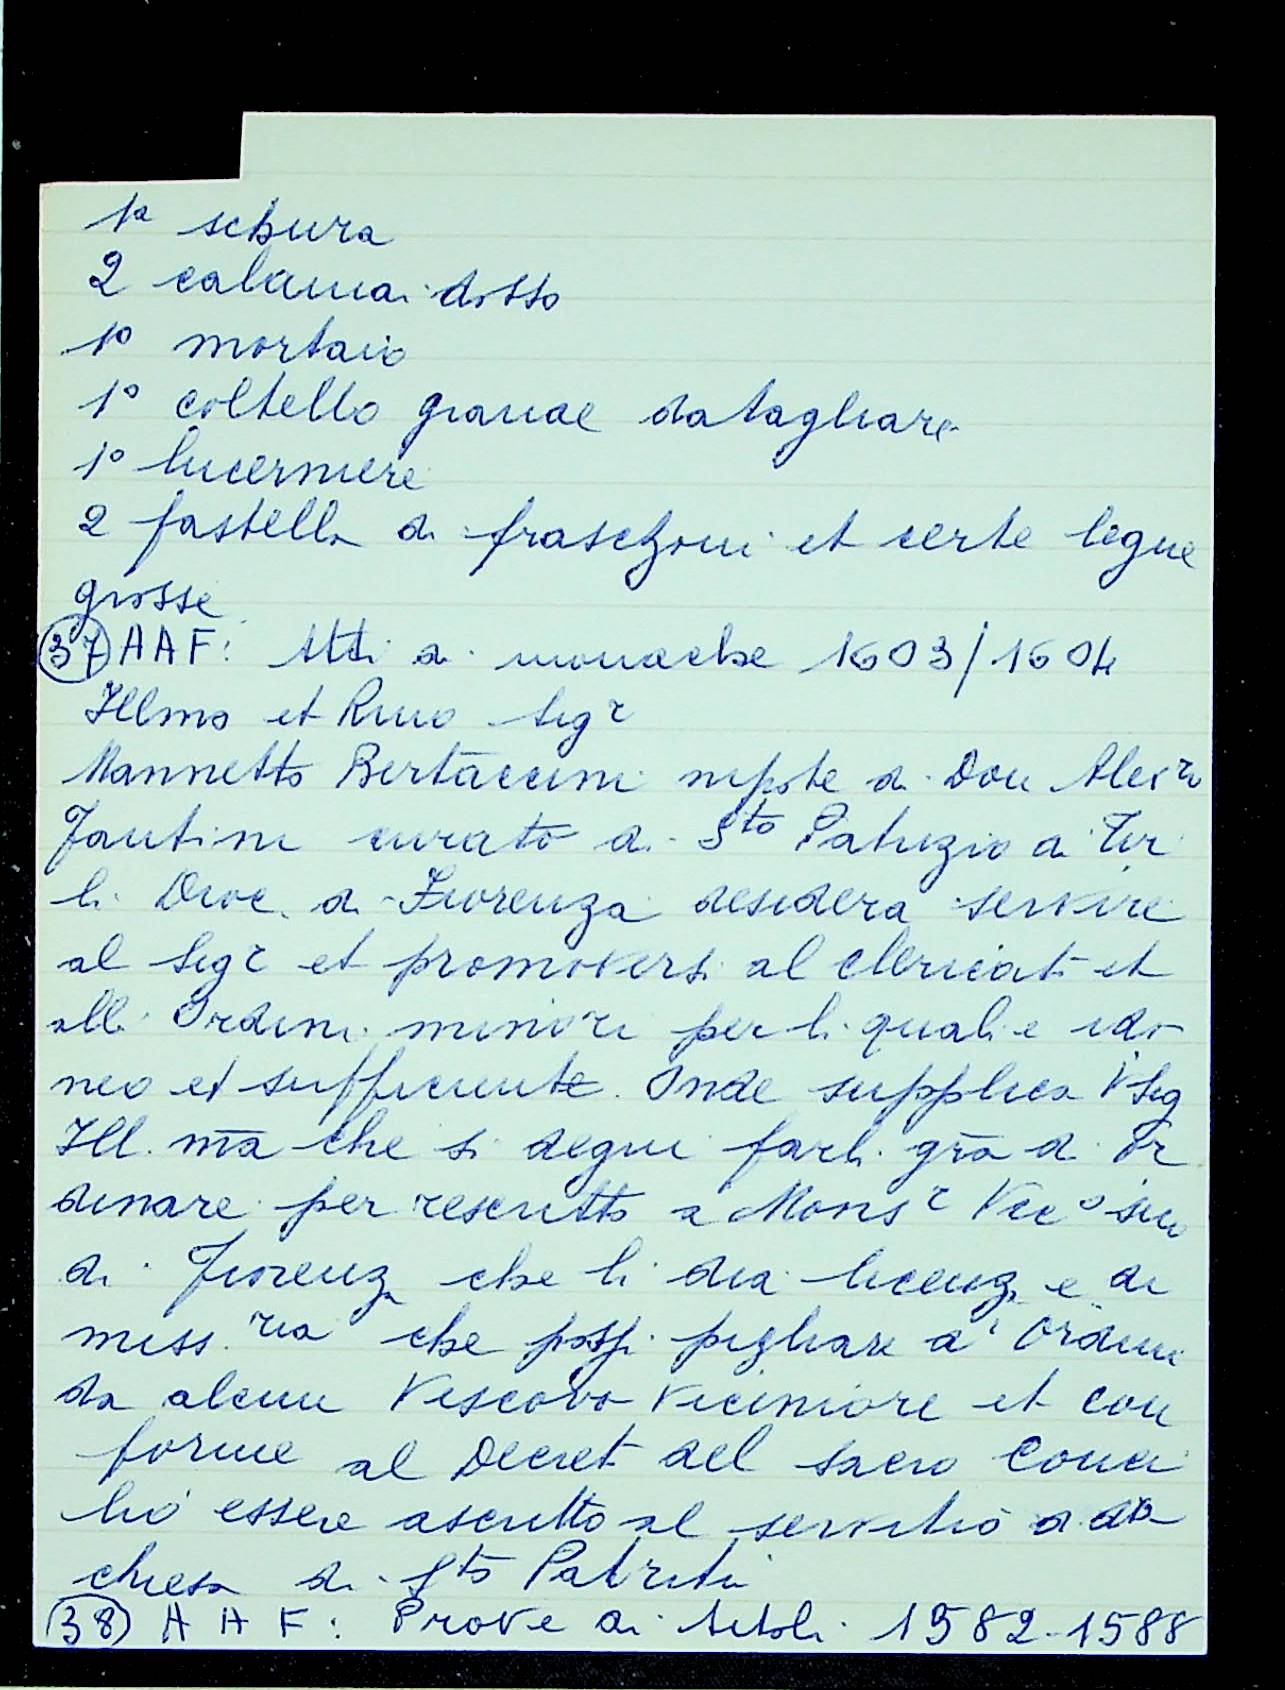 1ª schura
2 calamai dosso
1º mortaio
1º coltello grande da tagliare
1º lucerniere
2 fastella di fraschoni et certe legne
grosse
(37) AAF: Atti di monache 1603/1604
Illmo et Rmo Sigr
Mannetto Bertaccini nipote di Don Alesro
Fantini curato di Sto Patrizio a Tir
li Dioc. di Fiorenza desidera servire
al Sigr et promoversi al clericati et
alli Ordini minori per li quali e ido
neo et sufficiente. Onde supplica V Sig
Ill.ma che si degni farli gra di Or
dinare per rescritto a Monsr Vico suo
di Fiorenza che li dia licenza e di
miss.ria che possi pigliare di Ordini
da alcun Vescovo Viciniore et con
forme al Decret del sacro Conci
lio essere ascritto al servitio di da
chiesa di Sto Patritii
(38) AAF: Prove di titoli 1582-1588